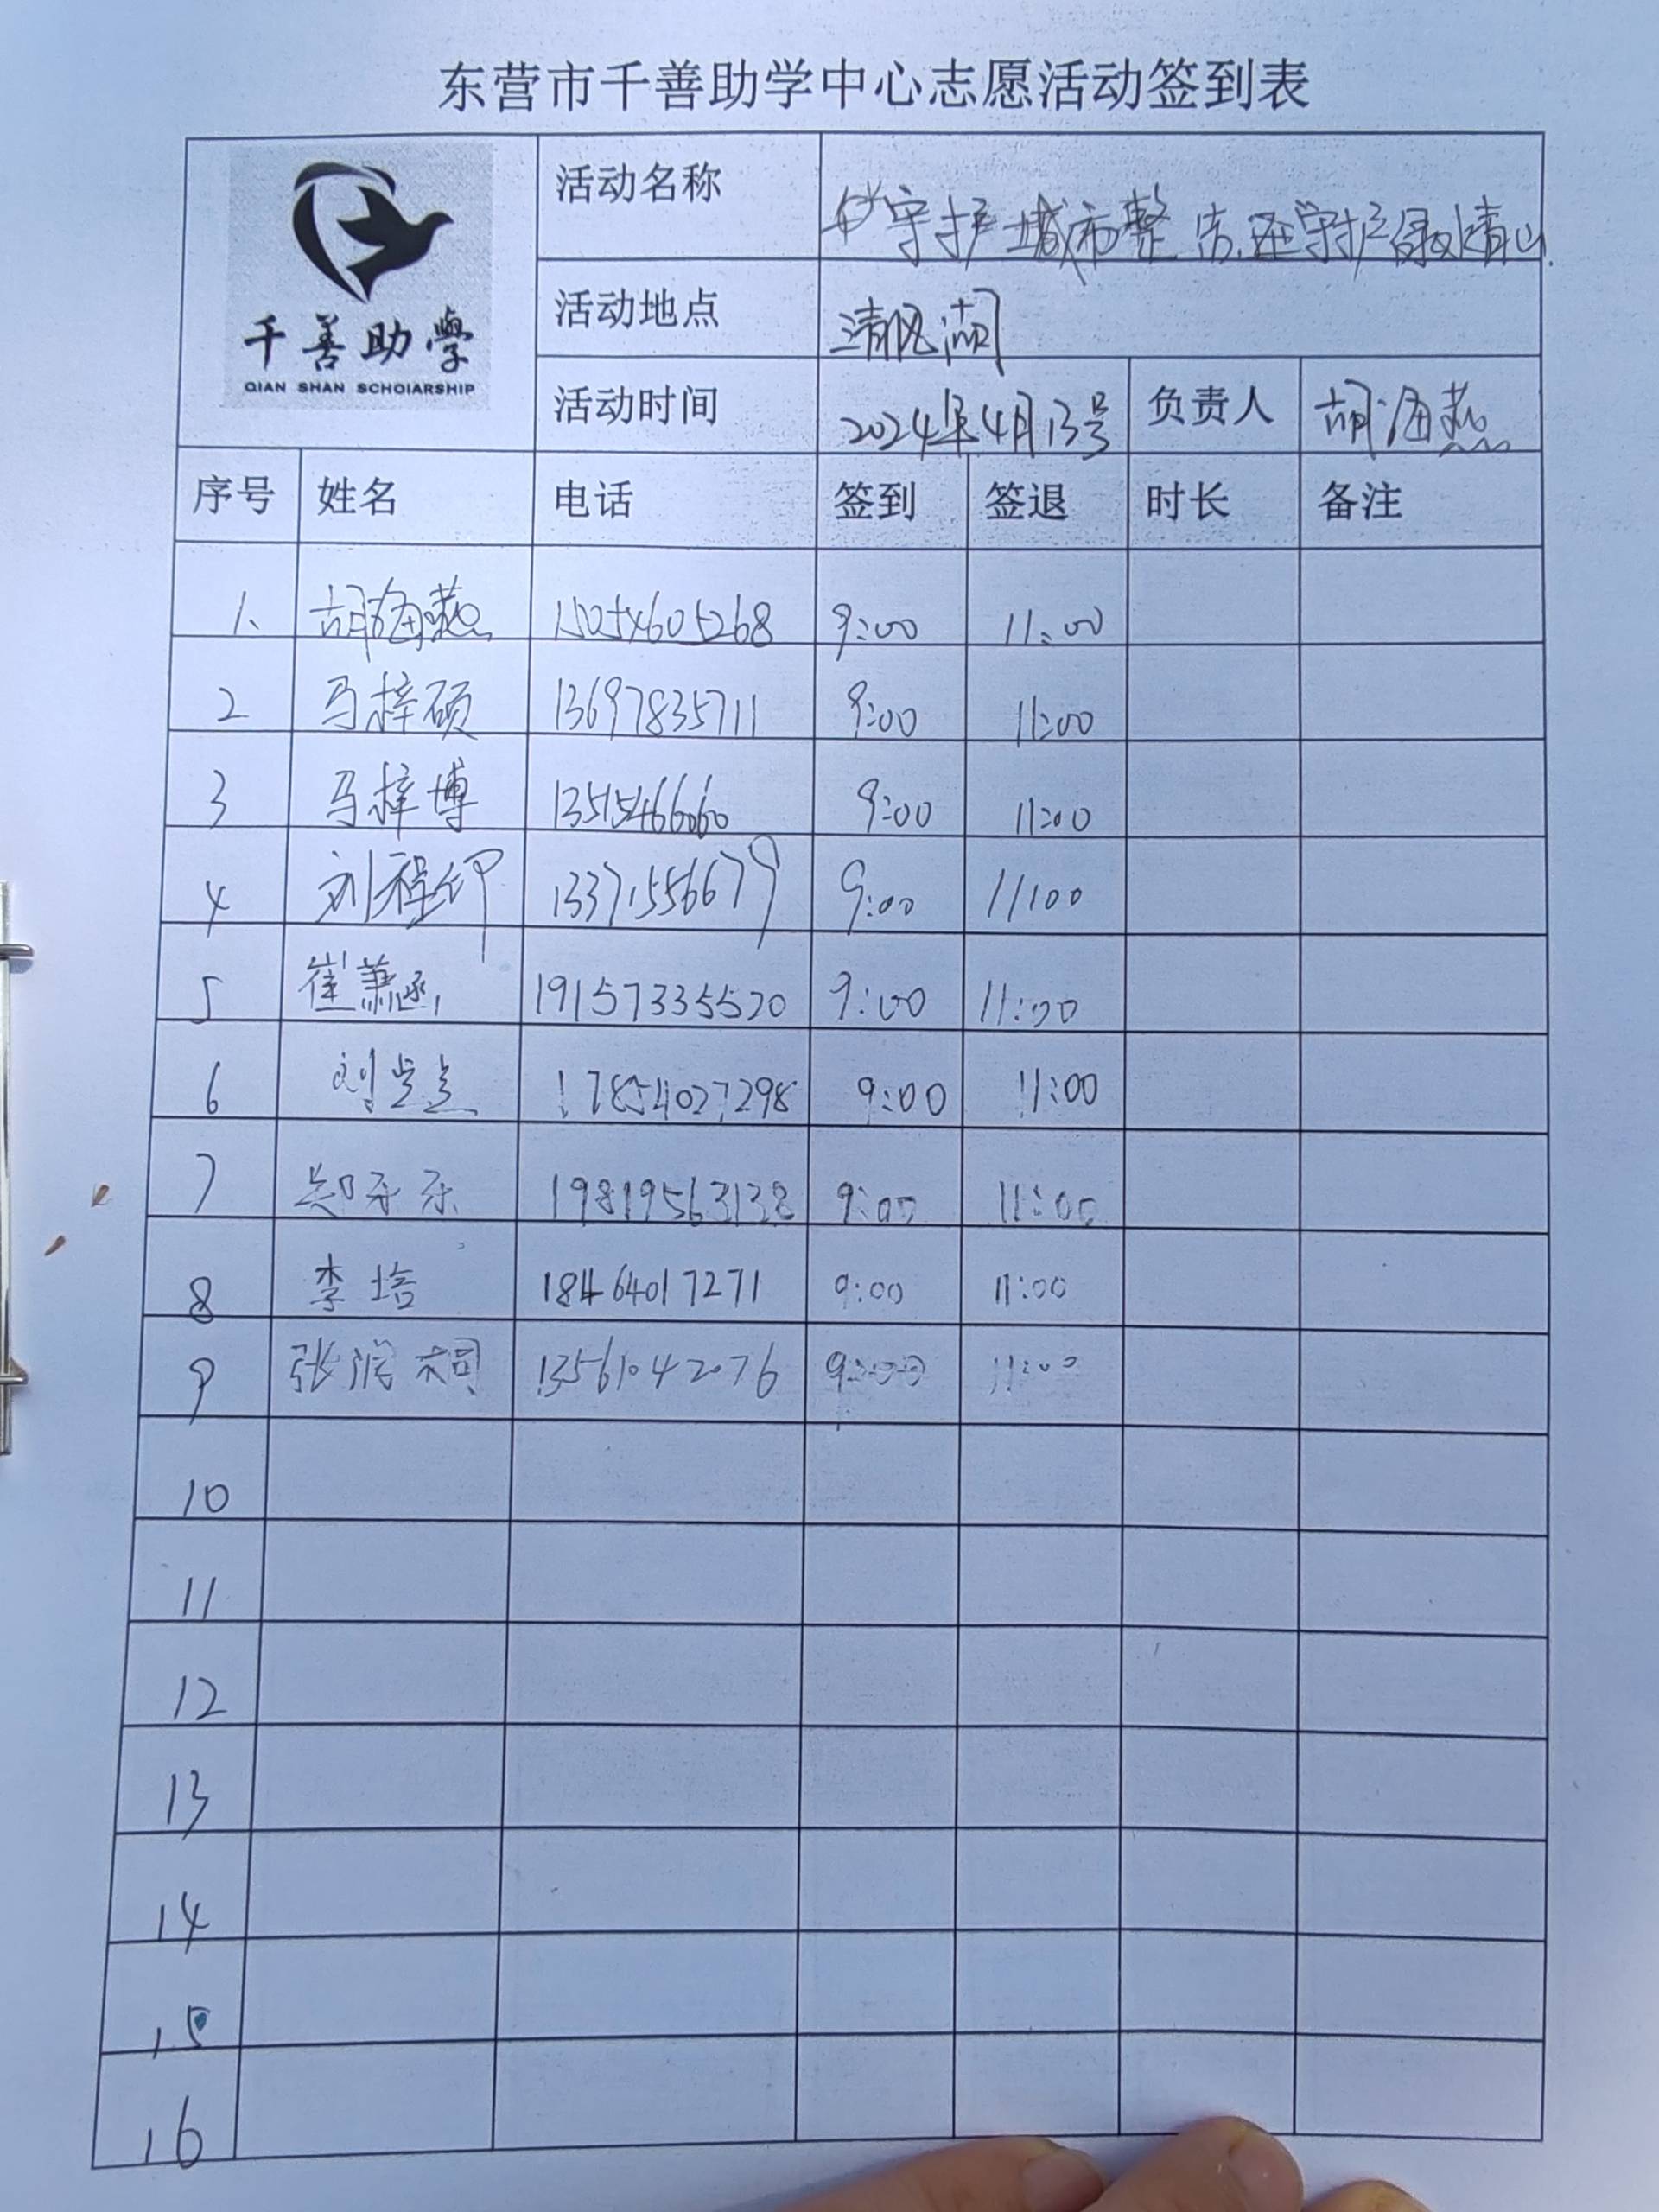 东营市千善助学中心志愿活动签到表
千善助學
QIAN SHAN SCHOIARSHIP
活动名称 守护城市整洁 守护绿 山
活动地点 清风湖
活动时间 2024年4月13号 负责人 胡海燕
序号 姓名 电话 签到 签退 时长 备注
1、 胡海燕 15054605268 9:00 11:00
2 马梓硕 13697835711 9:00 11:00
3 马梓博 13515466060 9:00 11:00
4 刘程 13371556679 9:00 11:00
5 崔萧涵 19157335520 9:00 11:00
6 刘 17854027298 9:00 11:00
7 郑乐乐 19819563138 9:00 11:00
8 李培 18464017271 9:00 11:00
9 张润桐 13561042076 9:00 11:00
10
11
12
13
14
15
16